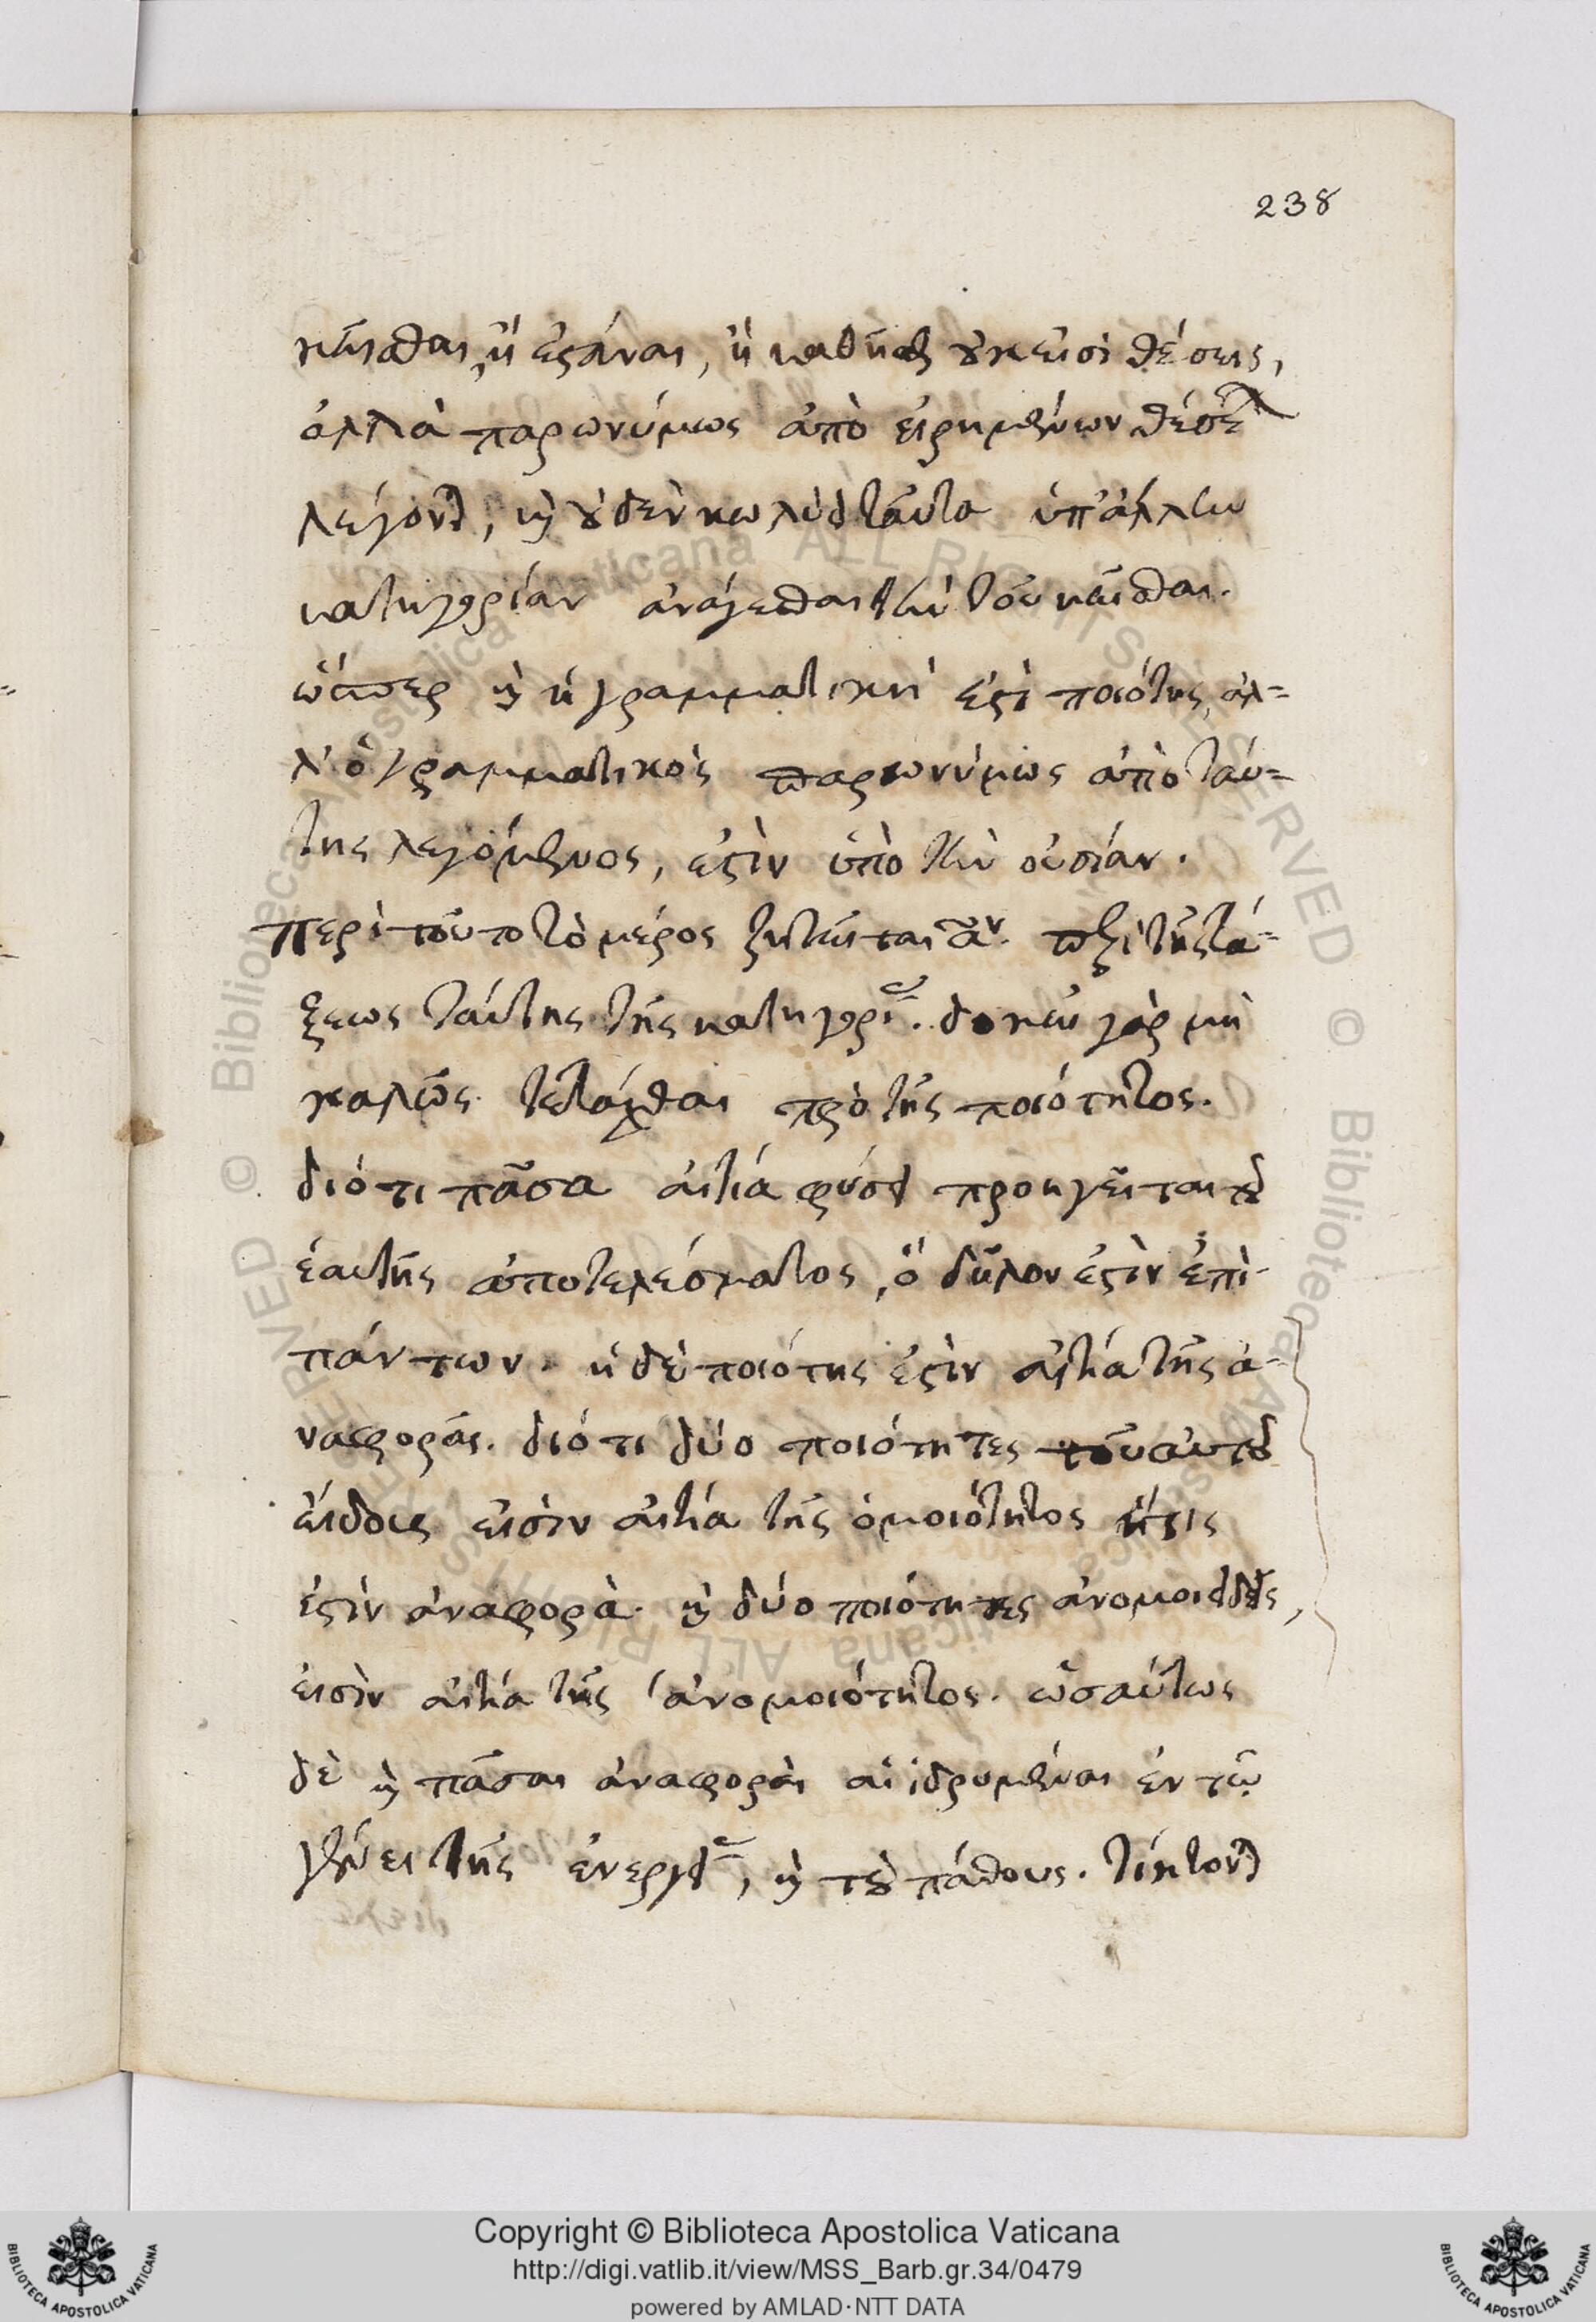 238
κεῖσθαι, ἢ ἑστάναι, ἢ καθῆσθαι οὐκ εἰσὶ θέσεις,
ἀλλὰ παρωνύμως ἀπὸ εἰρημένων θέσεων
λέγονται, καὶ οὐδὲν κωλύει ταῦτα ὑπ' ἄλλην
κατηγορίαν ἀνάγεσθαι τὴν τοῦ κεῖσθαι.
ὥσπερ καὶ ἡ γραμματική ἐστὶ ποιότης, ἀλ=
λ' ὁ γραμματικὸς παρωνύμως ἀπὸ ταύ=
της λεγόμενος, ἐστὶν ὑπὸ τὴν οὐσίαν.
περὶ τοῦτο τὸ μέρος ζητεῖται αον. περὶ τῆς τά=
ξεως ταύτης τῆς κατηγορίας. δοκεῖ γὰρ μὴ
καλῶς τετάχθαι πρὸ τῆς ποιότητος.
διότι πᾶσα αἰτία φύσει προηγεῖται τοῦ
ἑαυτῆς ἀποτελέσματος, ὃ δῆλον ἐστὶν ἐπὶ
πάντων. ἡ δὲ ποιότης ἐστὶν αἰτία τῆς ἀ=
ναφορᾶς. διότι δύο ποιότητες τοῦ αὐτοῦ
εἴδους εἰσὶν αἰτία τῆς ὁμοιότητος ἥτις
ἐστὶν ἀναφορὰ. καὶ δύο ποιότητες ἀνομοιειδεῖς,
εἰσὶν αἰτία τῆς ἀνομοιότητος. ὡσαύτως
δὲ καὶ πᾶσαι ἀναφοραὶ αἱ ἱδρυμέναι ἐν τῷ
γένει τῆς ἐνεργείας, καὶ τοῦ πάθους. τίκτονται
Copyright © Biblioteca Apostolica Vaticana
http://digi.vatlib.it/view/MSS_Barb.gr.34/0479
powered by AMLAD·NTT DATA